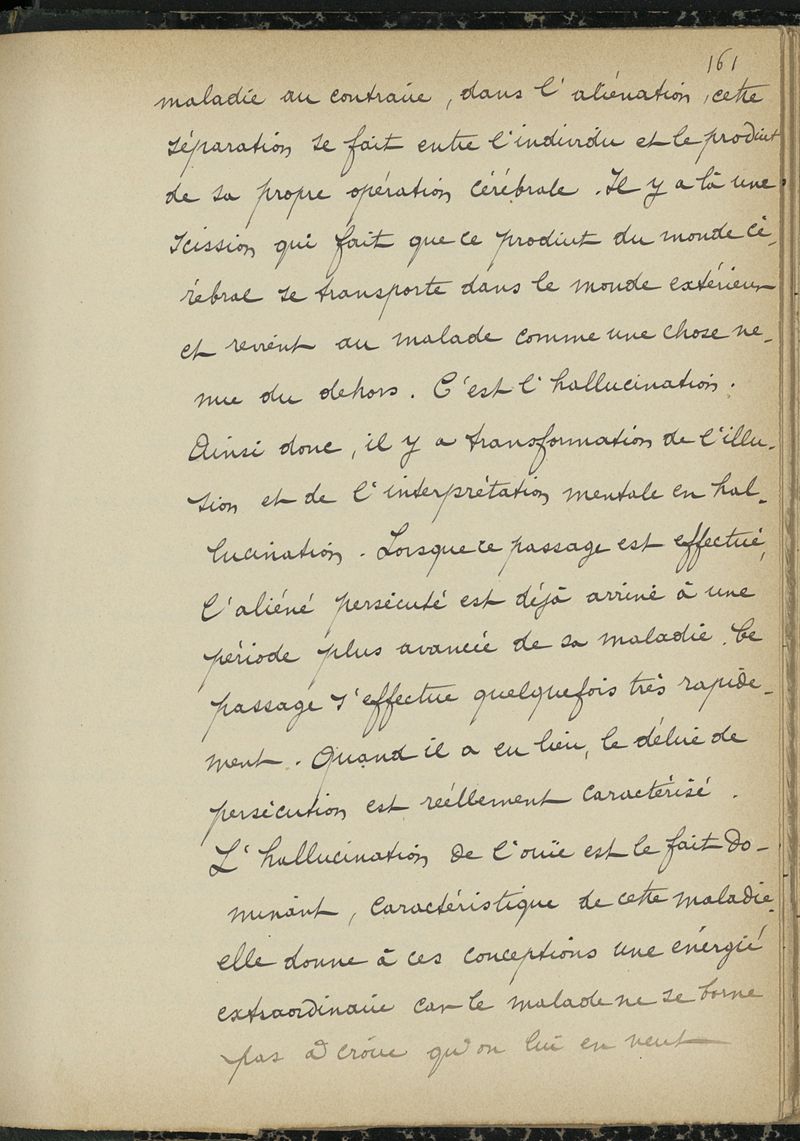 161
maladie au contraire, dans l'aliénation, cette
séparation se fait entre l'individu et le produit
de sa propre opération cérébrale. Il y a là une
scission qui fait que ce produit du monde cé-
rébral se transporte dans le monde extérieur
et revient au malade comme une chose ve-
nue du dehors. C'est l'hallucination.
Ainsi donc, il y a transformation de l'illu-
sion et de l'interprétation mentale en hal-
lucination. Lorsque ce passage est effectué,
l'aliéné persécuté est déjà arrivé à une
période plus avancée de sa maladie. Ce
passage s'effectue quelquefois très rapide-
ment. Quand il a eu lieu, le délire de
persécution est réellement caractérisé.
L'hallucination de l'ouïe est le fait do-
minant, caractéristique de cette maladie.
elle donne à ces conceptions une énergié
extraordinaire car le malade ne se borne
pas à croire qu'on lui en veut